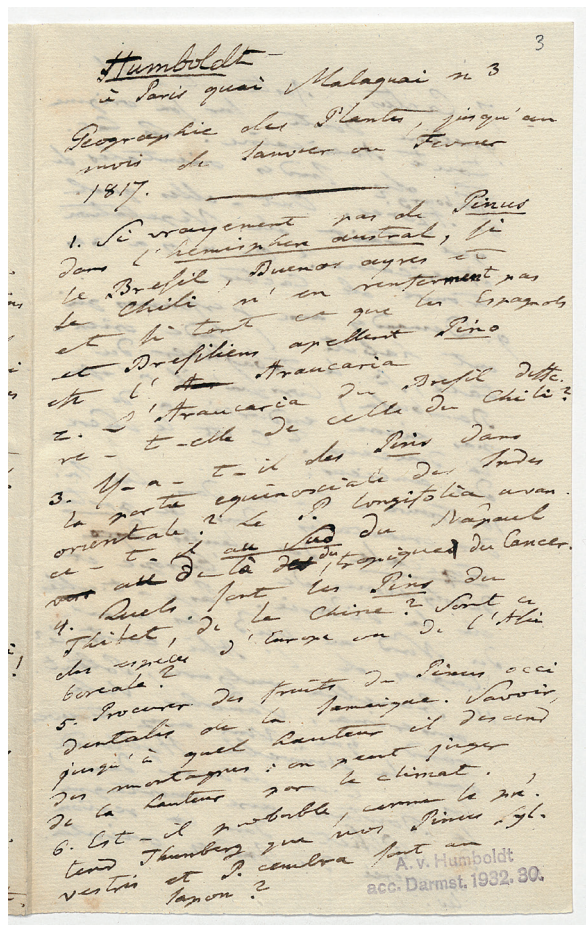 3
Humboldt
à Paris quai Malaquai n 3
Geographie des Plantes, jusqu'au
mois de Janvier ou Fevrier
1817.
1. Si vrayement pas de Pinus
dans l'hemisphere austral, si
le Bresil, Buenos ayres et
le Chili n'en renferment pas
et si tout ce que les Espagnols
et Bresiliens apellent Pino
est l' Araucaria
2. - L'Araucaria du Bresil diffe-
re - t - elle de celle du Chili?
3. Y - a - t - il des Pins dans
la partie equinoxiale des Indes
orientale? Le P. longifolia avan-
ce - t - il au Sud du Napaul
au de là du tropique du Cancer.
4. Quels sont les Pins du
Thibet, de la Chine? Sont ce
des especes d'Europe ou de l'Asie
boreale?
5. Procurer des fruits du Pinus occi
dentalis de la Jamaique. Savoir,
jusqu'à quel hauteur il descend
des montagnes: on peut juger
de la hauteur par le climat.
6. Est - il probable, comme le pré-
tend Thunberg que nos Pinus syl-
vestris et P. cembra sont au
Japon?
A. v. Humboldt
acc. Darmst. 1932. 30.